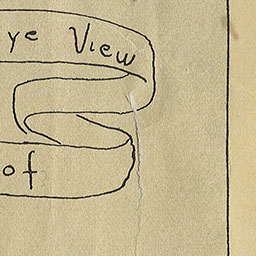 ye View
of